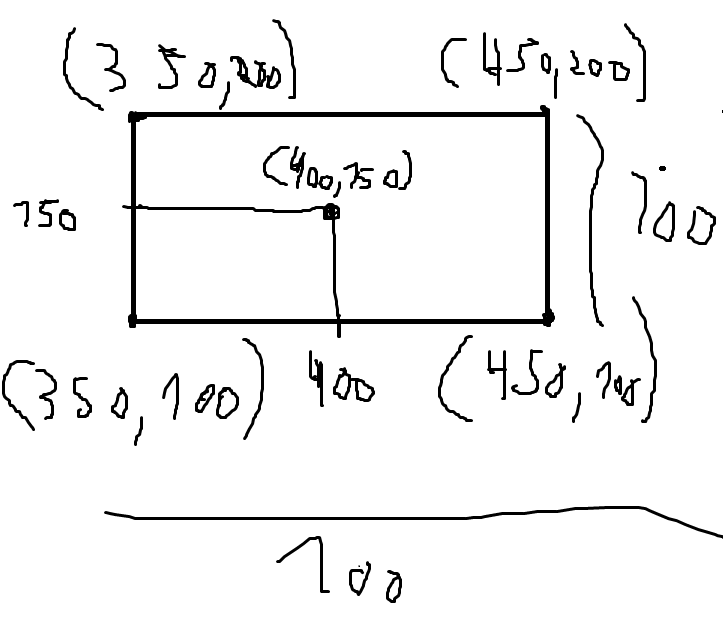 (350,200) (450,200)
(400,150)
150
100
(350,100) 400 (450,100)
100